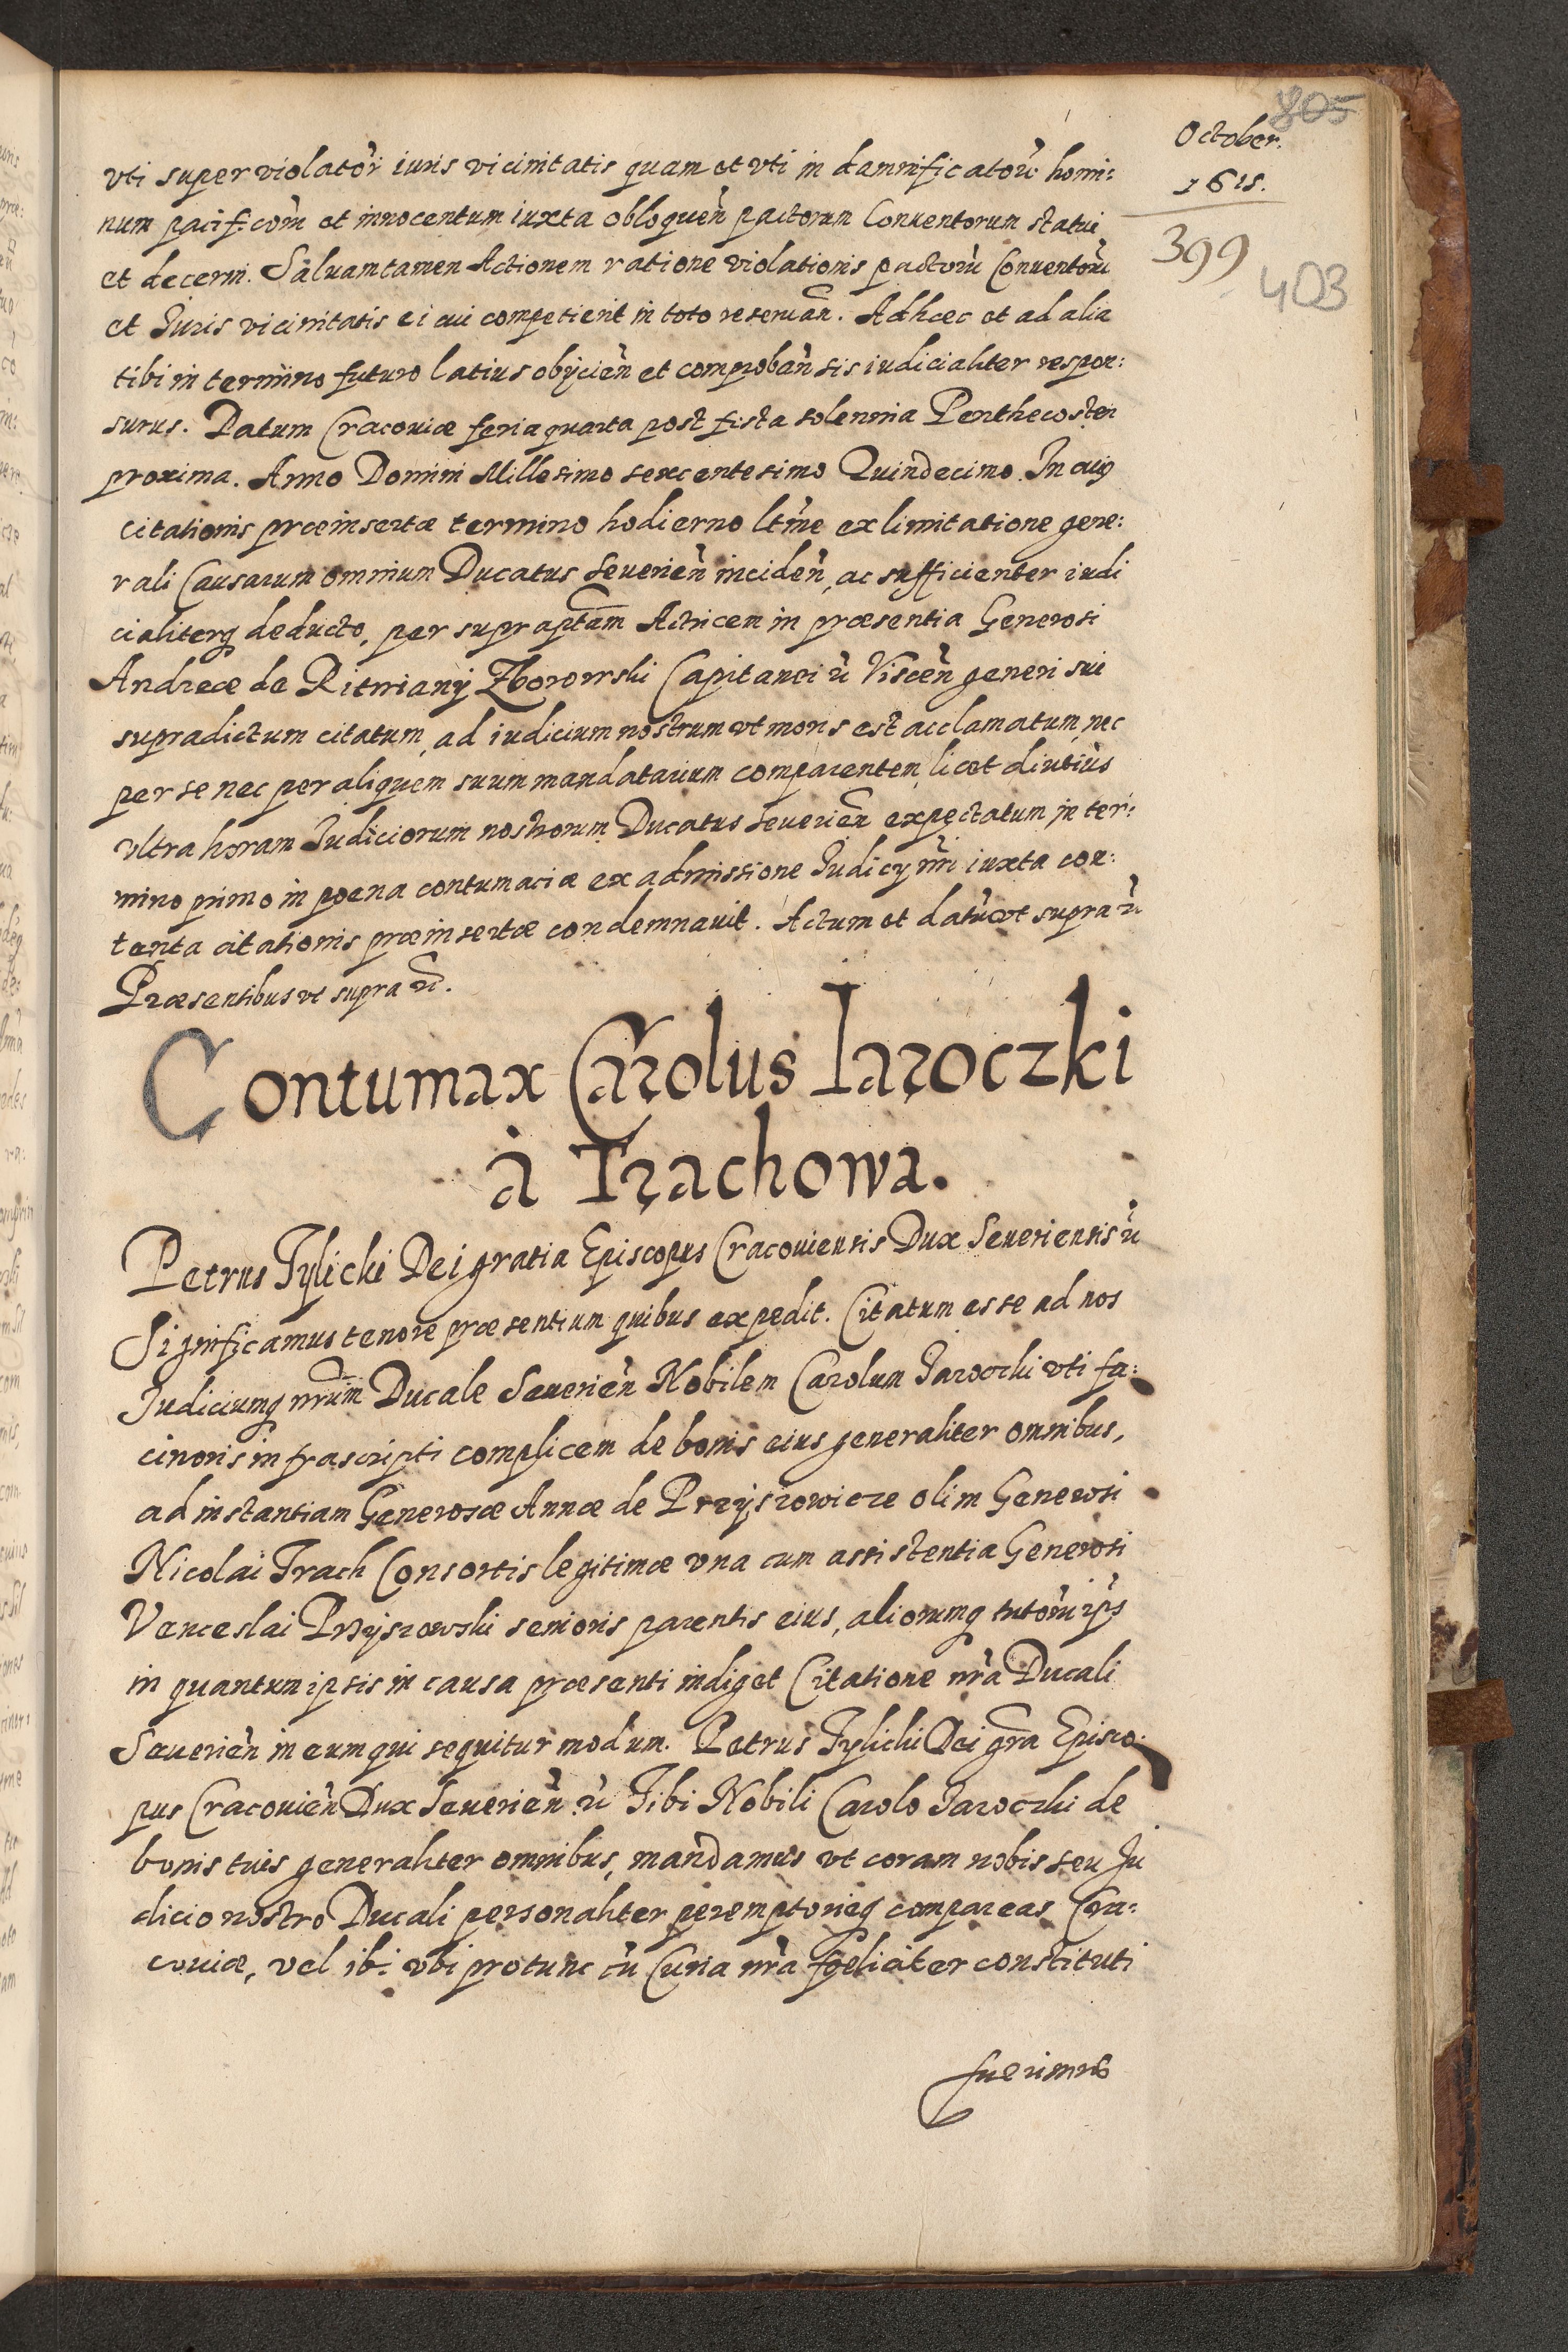 805
October.
1615.
399
403
vti super violatorĩ iuris vicinitatis quam et vti in damnificatorũ homi:
num pacificorũ et innocentum iuxta obloquen̄ pactorum Conuentorum statui
et decerni. Saluam tamen Actionem ratione violationis pactorũ Conuentorũ
et Iuris vicinitatis ei cui competierit in toto reseruan̄. Ad hæc et ad alia
tibi in termino futuro latius obijcien̄ et comproban̄ sis iudicialiter respon:
surus. Datum Cracouiæ feria quarta post festa solennia Penthecosten
proxima. Anno Domini Millesimo sexcentesimo Quindecimo. In cuiq
citationis præinsertæ termino hodierno ltĩme ex limitatione gene:
rali Causarum omnium Ducatus Seuerien̄ inciden̄, ac sufficienter iudi
cialiterq deducto, per supraptam Actricem in præsentia Generosi
Andreæ de Ritwiany Zborowski Capitanei ũ Viscen̄ generi sui
supradictum citatum, ad iudicium nostrum vt moris est acclamatum, nec
per se nec per aliquem suum mandatarium comparentem, licet diutius
vltra horam Iudiciorum nostrorum Ducatus Seuerien̄ expectatum in ter:
mino primo in poena contumaciæ ex admissione Iudicij nr̃i iuxta con:
tenta citationis præinsertæ condemnauit. Actum et datũ vt supra ũ
Præsentibus vt supra ũ.
Contumax Carolus Iaroczki
à Trachowa.
Petrus Tylicki Dei gratia Episcopus Cracouiensis Dux Seueriensis ũ
Significamus tenore præsentium quibus expedit. Citatum esse ad nos
Iudiciumq nr̃um Ducale Seuerien̄ Nobilem Carolum Jaroczki vti fa:
cinoris infrascripti complicem de bonis eius generaliter omnibus,
ad instantiam Generosæ Annæ de Przyszowicze olim Generosi
Nicolai Trach Consortis legitimæ vna cum assistentia Generosi
Venceslai Przyszowski senioris parentis eius, aliorumq tutorũ ip̃s
in quantum ipsis in causa præsenti indiget Citatione nr̃a Ducali
Seuerien̄ in eum qui sequitur modum. Petrus Tylicki Dei gr̃a Episco:
pus Cracouien̄ Dux Seuerien̄ ũ Tibi Nobili Carolo Jaroczki de
bonis tuis generaliter omnibus, mandamus vt coram nobis seu Iu
dicio nostro Ducali personaliter peremptorieq compareas Cra:
couiæ, vel ibi vbi protunc cũ Curia nr̃a foeliciter constituti
fuerimus